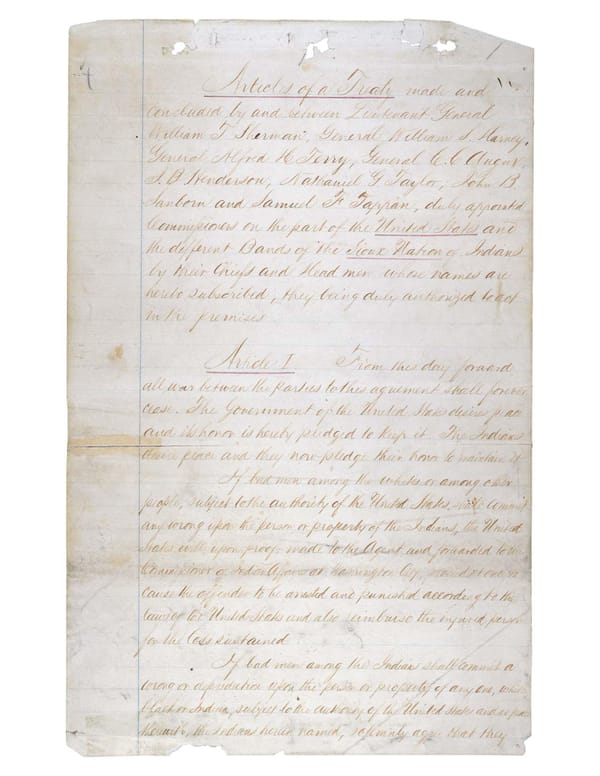 Articles of a Treaty made and
concluded by and between Lieutenant General
William T. Sherman, General William S. Harney,
General Alfred H. Terry, General C. C. Augur,
J. B. Henderson, Nathaniel G. Taylor, John B.
Sanborn and Samuel F. Tappan, duly appointed
Commissioners on the part of the United States and
the different Bands of the Sioux Nation of Indians
by their Chiefs and Head men whose names are
hereto subscribed, they being duly authorized to act
in the premises
Article I From this day forward
all war between the parties to this agreement shall forever
cease. The Government of the United States desires peace
and its honor is hereby pledged to keep it. The Indians
desire peace and they now pledge their honor to maintain it
If bad men among the whites or among other
people, subject to the authority of the United States, shall commit
any wrong upon the person or property of the Indians, the United
States will, upon proof made to the Agent and forwarded to the
Commissioner of Indian Affairs at Washington City, proceed at once to
cause the offender to be arrested and punished according to the
laws of the United States and also reimburse the injured person
for the loss sustained
If bad men among the Indians shall commit a
wrong or depredation upon the person or property of any one, white
black or Indian, subject to the authority of the United States and at peace
therewith, the Indians herein named, solemnly agree that they